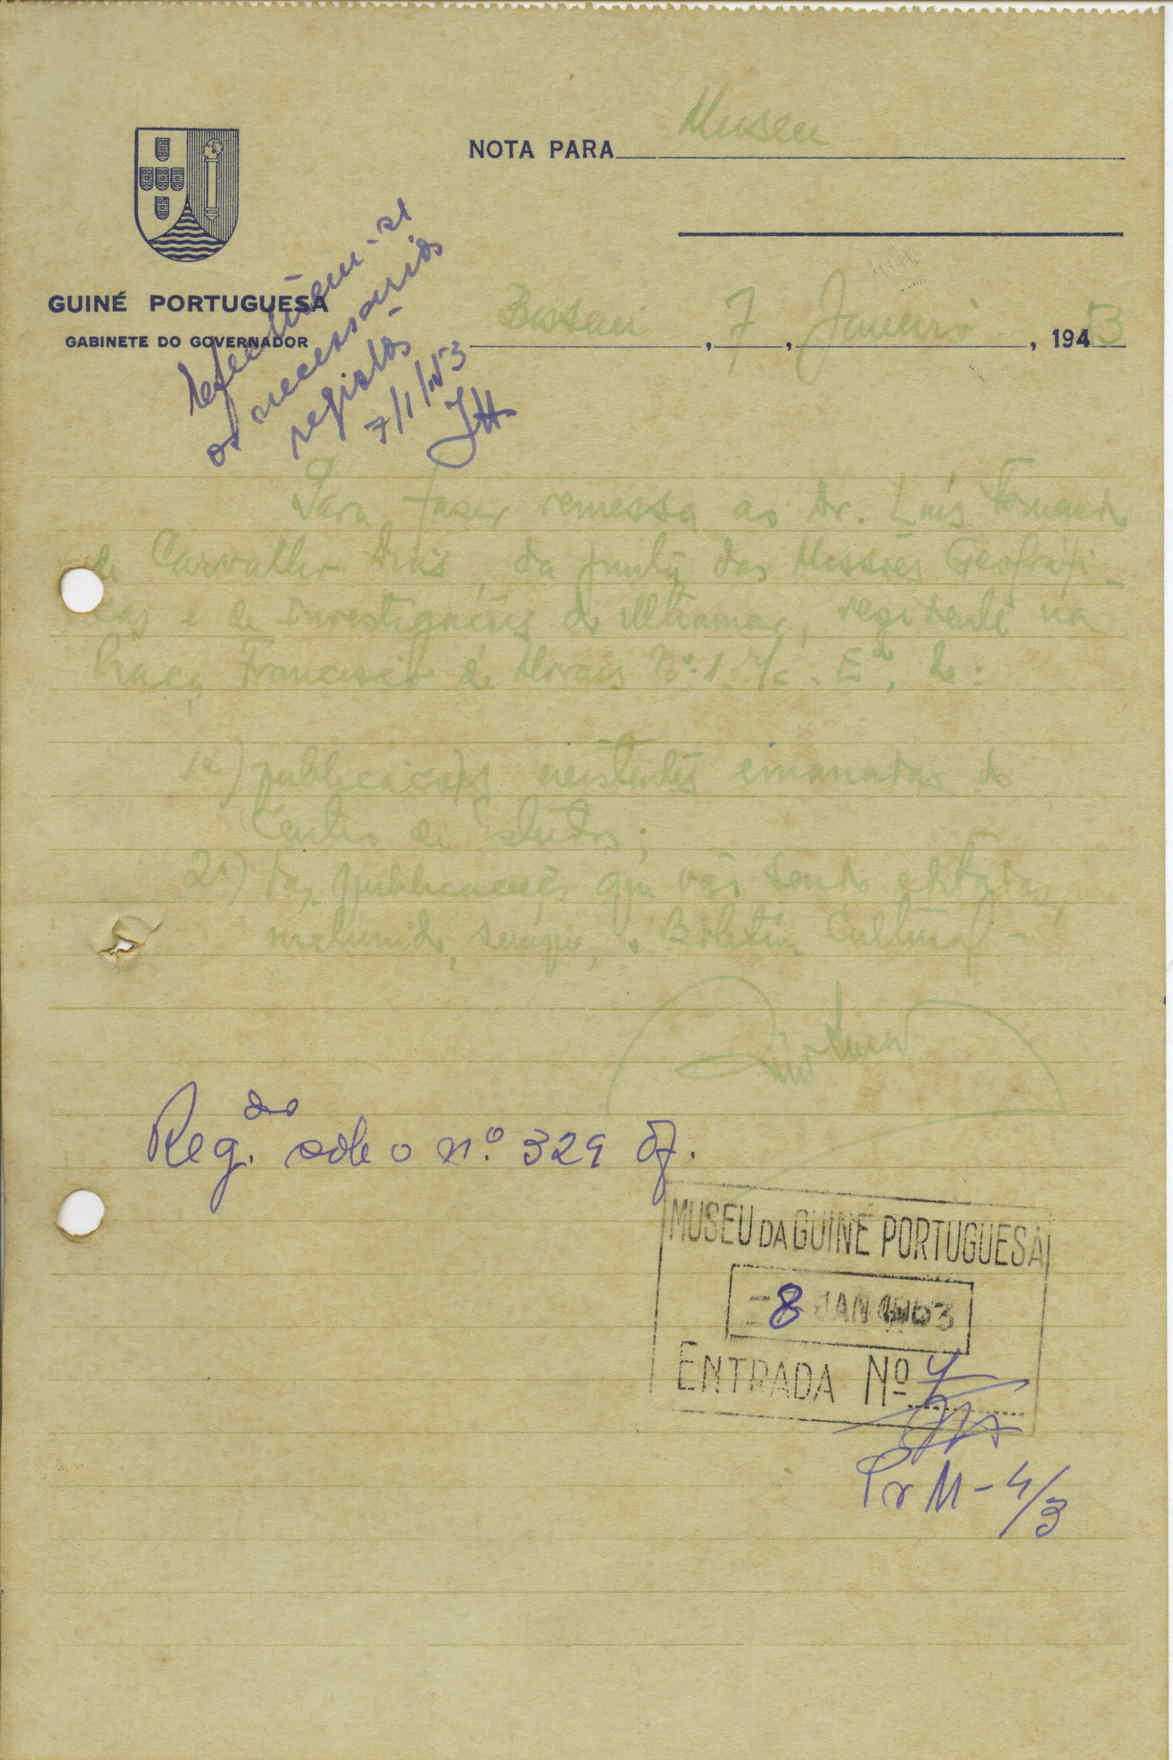 NOTA PARA Museu
GUINÉ PORTUGUESA
GABINETE DO GOVERNADOR
Bissau, 7, Janeiro, 1953
Efectuem-se
os necessarios
registos
7/1/53
Para fazer remessa ao Dr. Luís Fernando
de Carvalho Dias, da Junta das Missões Geográfi-
cas e de Investigações do Ultramar, residente na
Praça Francisco de Morais Nº. 1. r/c. Eº, de:
1º) publicações existentes emanadas do
Centro de Estudos;
2º) das publicações que vão sendo editadas,
incluindo, sempre, o Boletim Cultural -
Reg.do sob o n.º 329 of.
MUSEU DA GUINÉ PORTUGUESA
-8 JAN 1953
ENTRADA Nº 4
Pr M-4/3